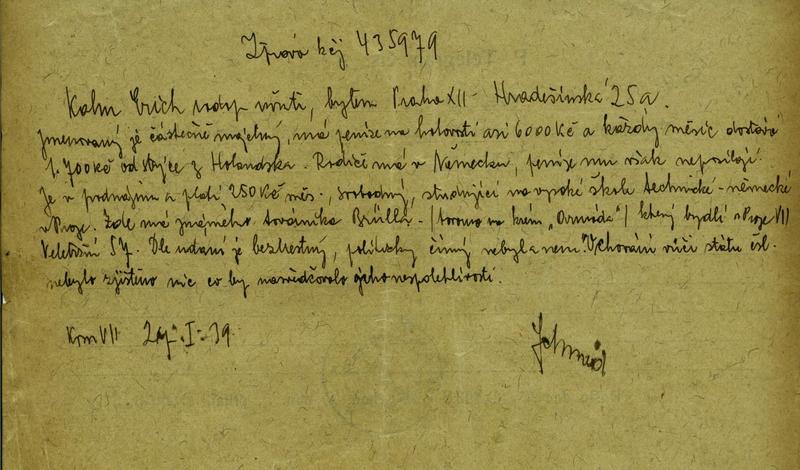 Zpráva k čj 435979
Kohn Erich bytem Praha XII - Hradešínská 25a.
Jmenovaný je částečně majetný, má peníze na hotovosti asi 6000 Kč a každý měsíc dostává
1.700 Kč od strýce z Holandska. Rodiče má v Německu, peníze mu však neposílají.
Je v podnájmu a platí 250 Kč měs., svobodný, studující na vysoké škole technické - německé
v Praze. Zde má známého továrníka Brülla - který bydlí v Praze VII
Veletržní 57. Dle udání je beztrestný, politicky činný nebyl a není. Chování vůči státu čsl.
nebylo zjištěno nic co by nasvědčovalo jeho nespolehlivosti.
VII I. 39